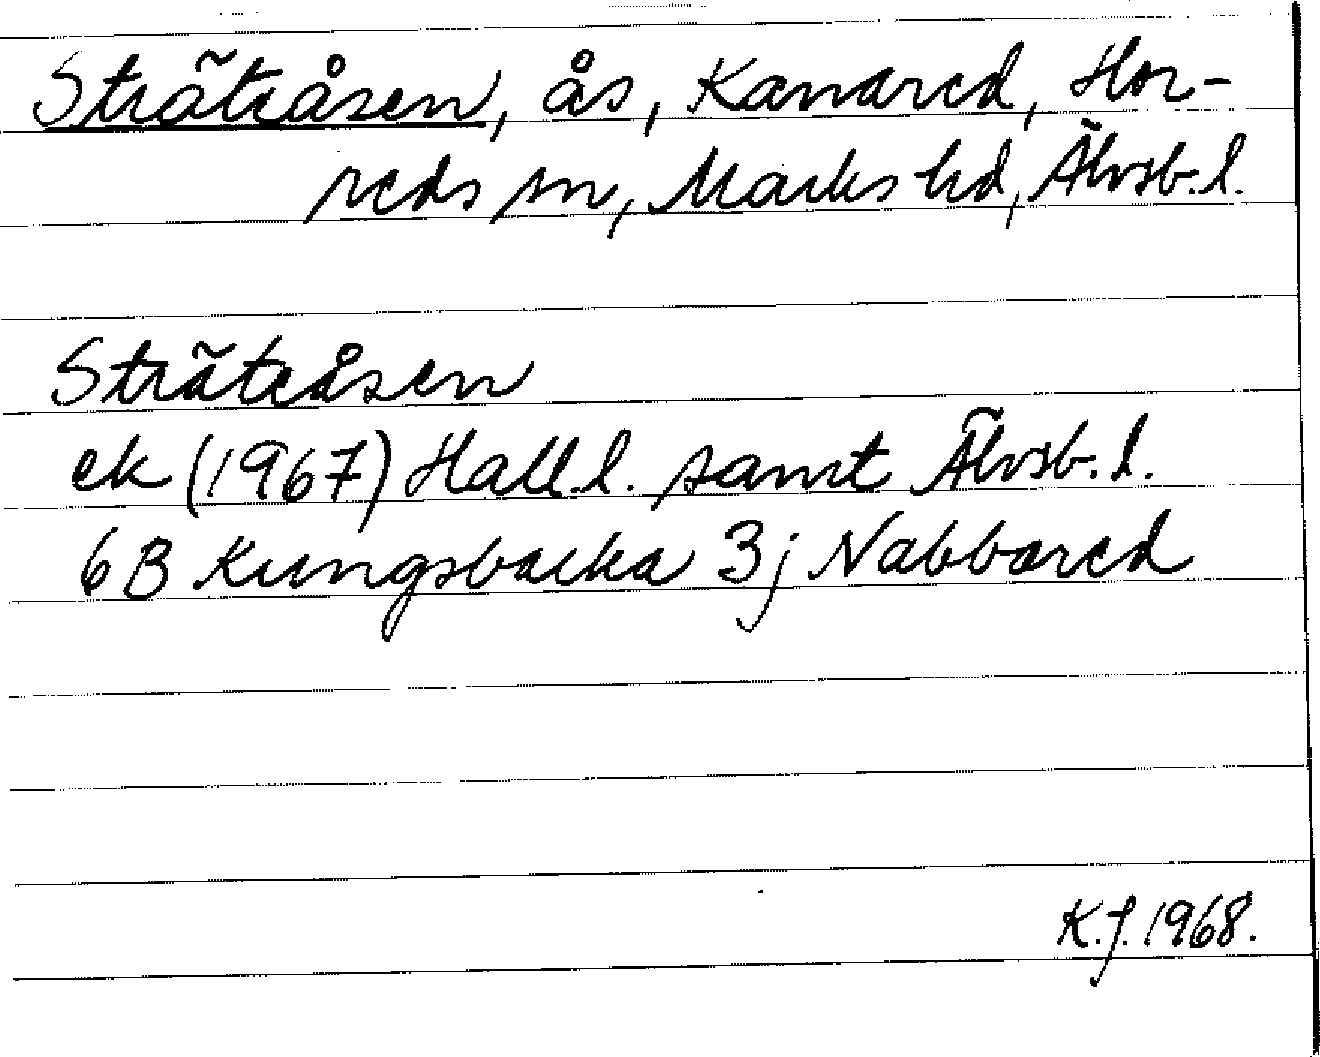 Sträteåsen, ås, Kanared, Hor-
reds sn, Marks hd, Älvsb. l.
Sträteåsen
ek (1967) Hall. l. samt Älvsb. l.
6B Kungsbacka 3j Nabbared
K.J. 1968.